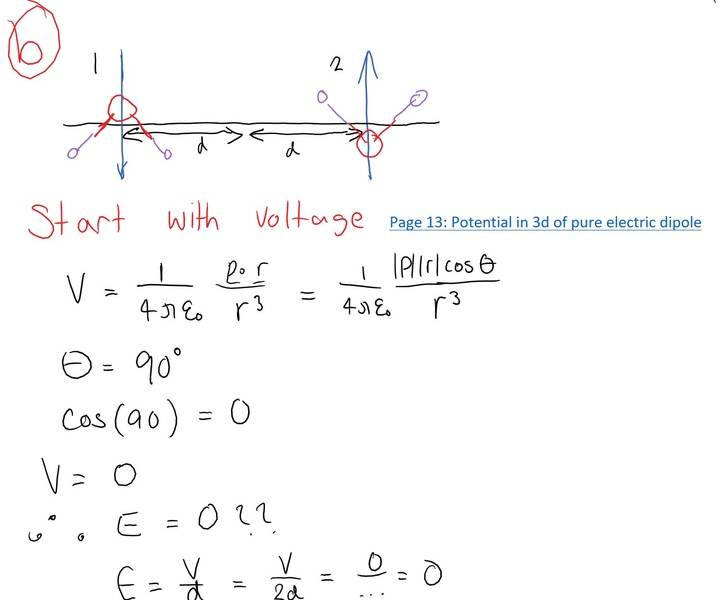 b
1 2
d d
Start with voltage Page 13: Potential in 3d of pure electric dipole
V = 1/4πε₀ p·r/r³ = 1/4πε₀ |P||r|cosθ/r³
θ = 90°
cos(90) = 0
V = 0
∴ E = 0 ??
E = V/d = V/2d = 0/... = 0